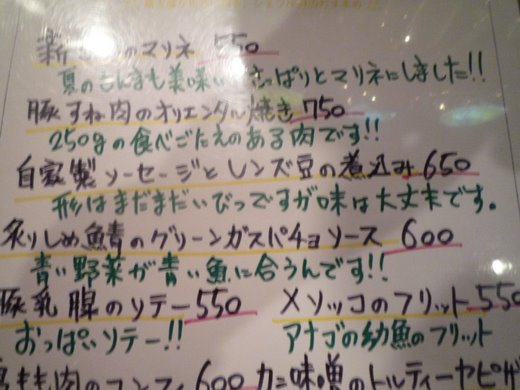 新 のマリネ 550
夏の も美味い さっぱりとマリネにしました!!
豚すね肉のオリエンタル焼き 750
250gの食べごたえのある肉です!!
自家製ソーセージとレンズ豆の煮込み 650
形はまだまだいびつですが味は大丈夫です。
炙りしめ鯖のグリーンガスパチョソース 600
青い野菜が青い魚に合うんです!!
豚乳腺のソテー 550 メソッコのフリット 550
おっぱいソテー!! アナゴの幼魚のフリット
もも肉のコンフィ 600 カニ味噌のトルティーヤピザ